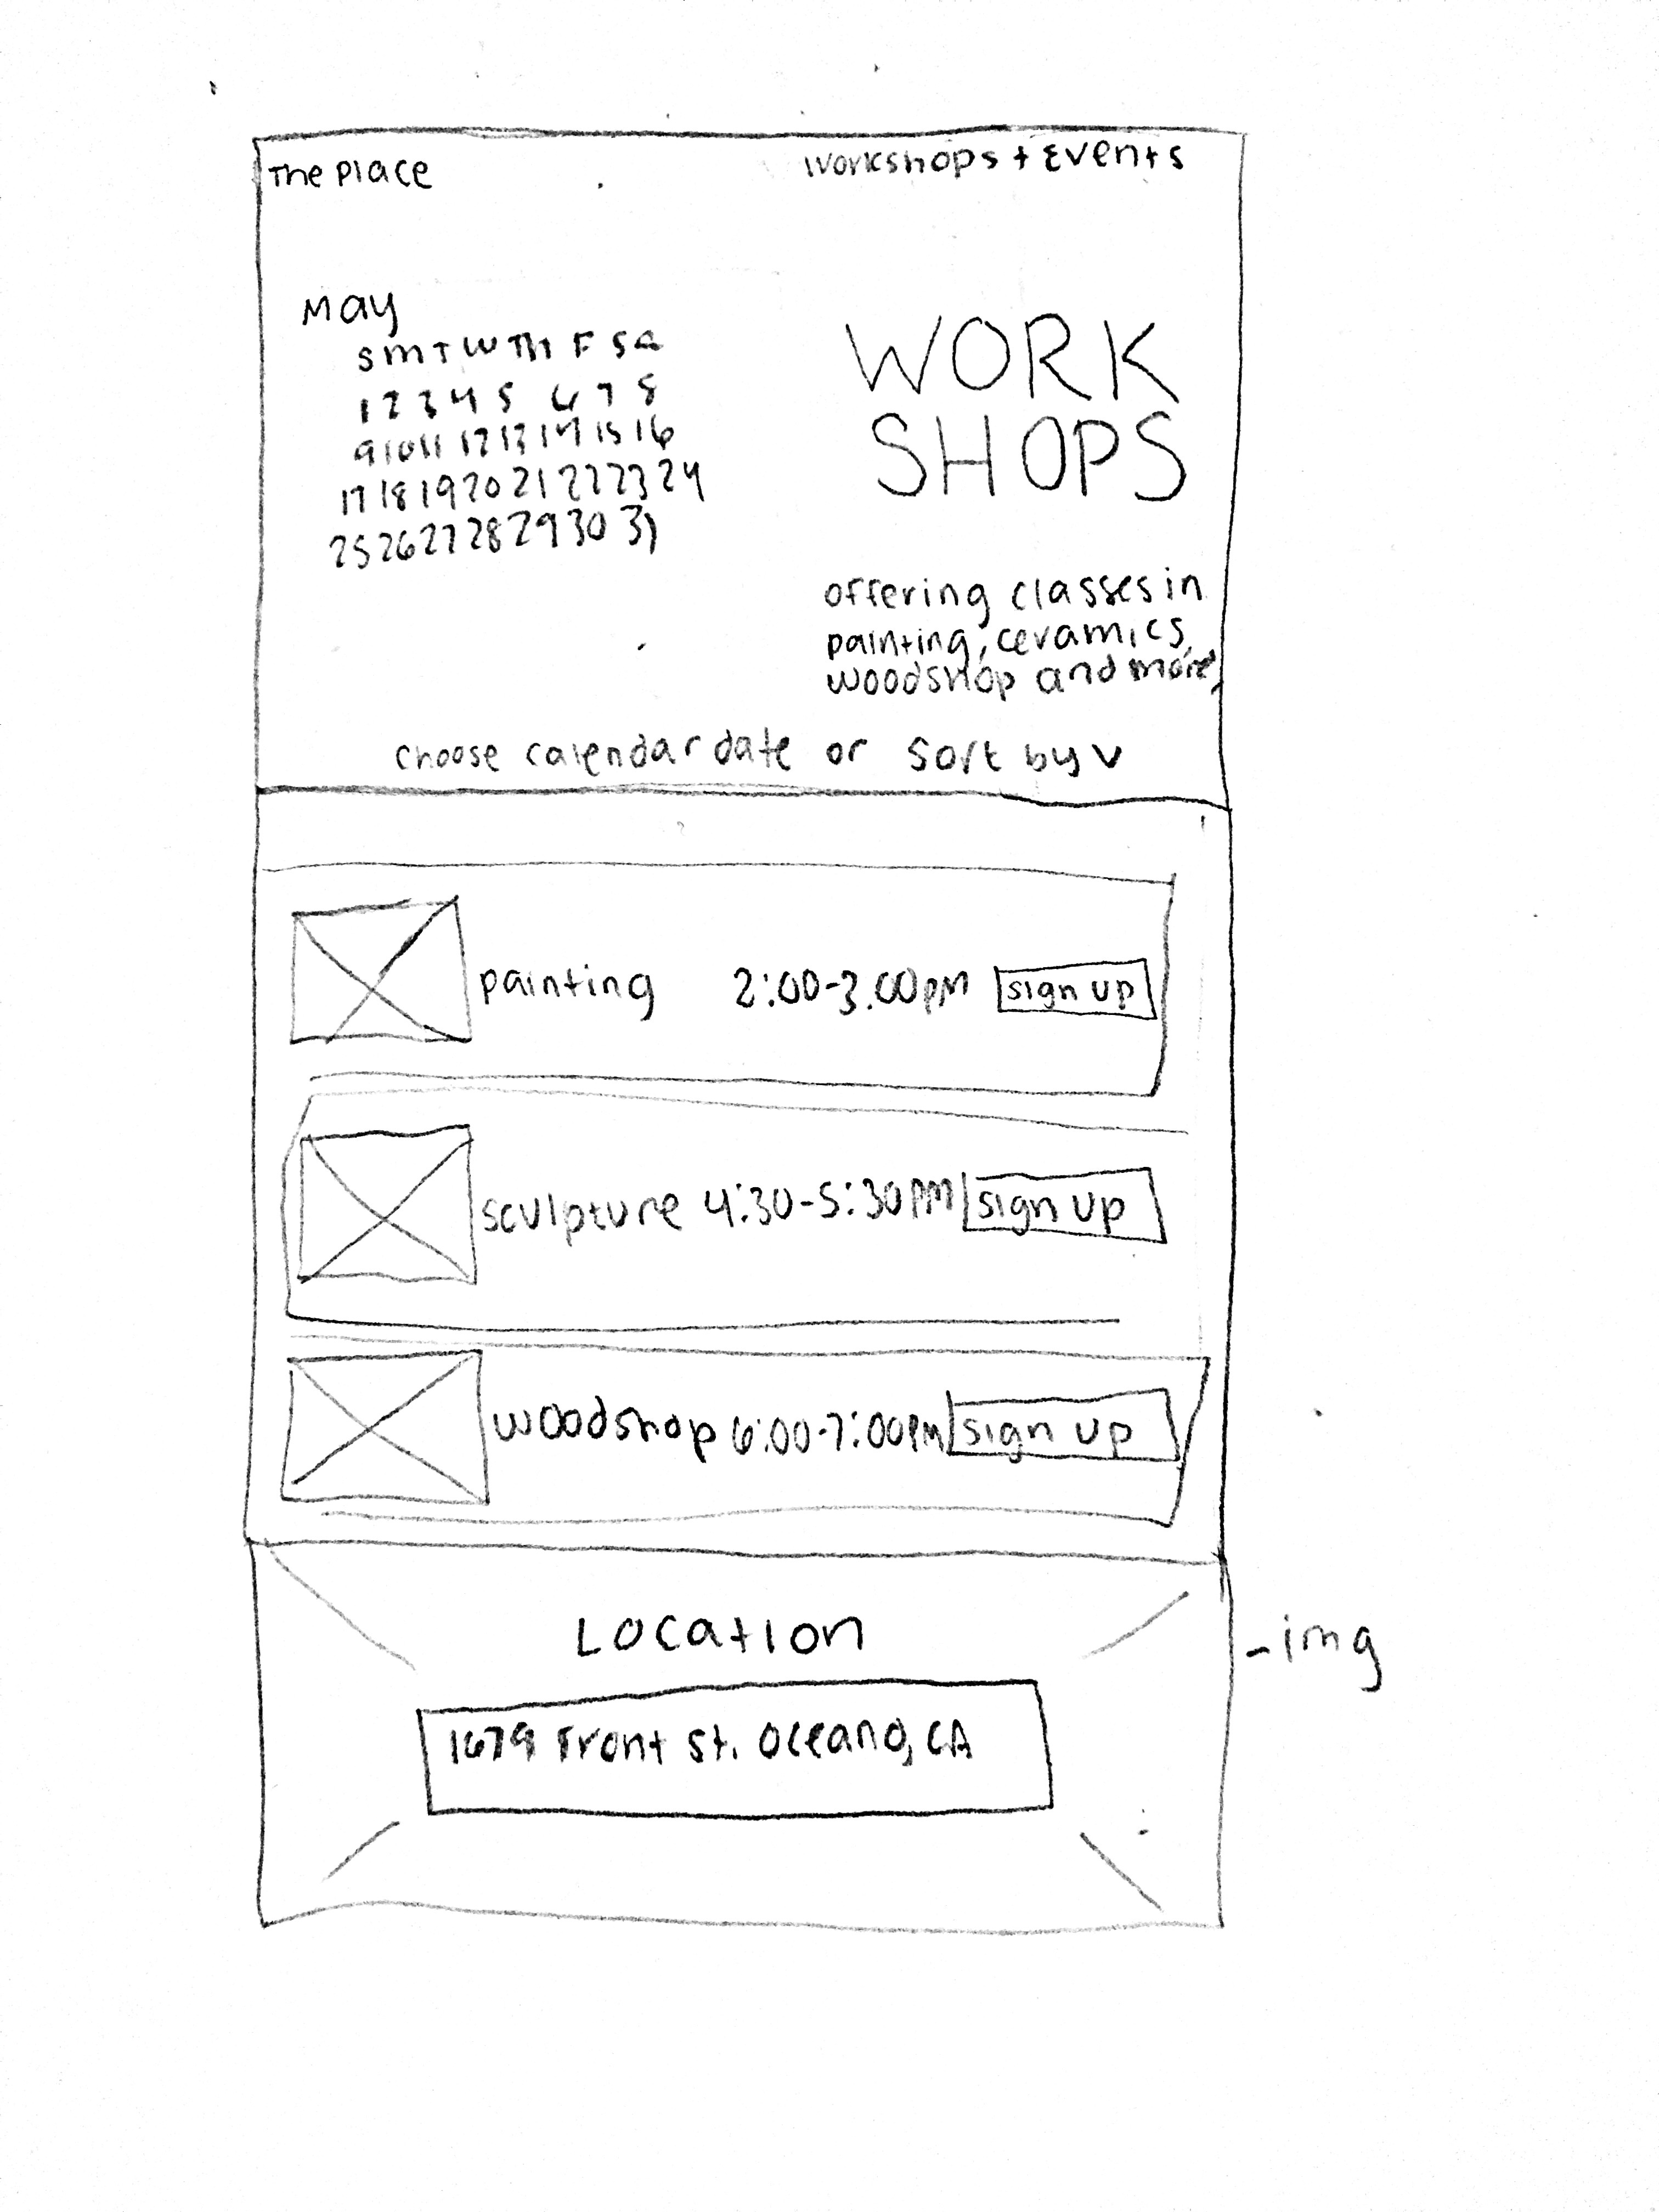 The Place
Workshops + Events
May
S M T W TH F S S
1 2 3 4 5 6 7 8
9 10 11 12 13 14 15 16
17 18 19 20 21 22 23 24
25 26 27 28 29 30 31
WORK
SHOPS
offering classes in
painting, ceramics,
woodshop and more,
choose calendar date or sort by v
painting 2:00-3:00PM sign up
sculpture 4:30-5:30PM sign up
woodshop 6:00-7:00PM sign up
Location
-img
1679 Front St. Oceano, CA